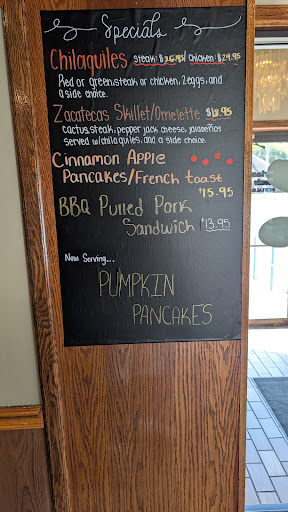 Specials
Chilaquiles steak: $26.95/ chicken: $24.95
Red or green, steak or chicken, 2 eggs, and
a side choice.
Zacatecas Skillet/Omelette
cactus, steak, pepper jack cheese, jalapeños
served w/chilaquiles, and a side choice.
Cinnamon Apple
Pancakes/French toast
$15.95
BBQ Pulled Pork
Sandwich $13.95
Now Serving...
PUMPKIN
PANCAKES